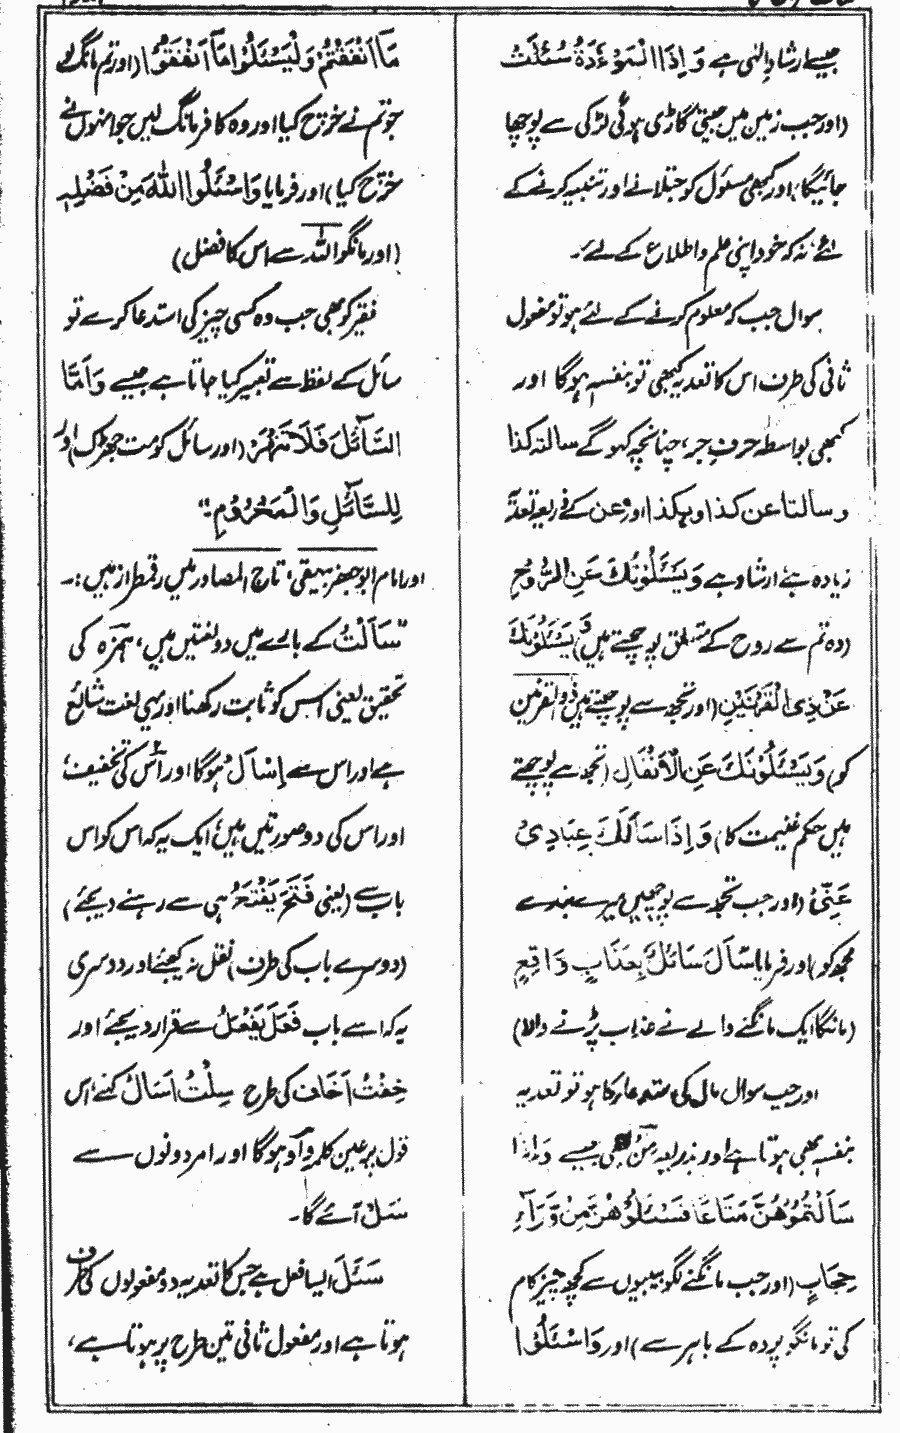 جیسے ارشاد الٰہی ہے وَ اِذَا الْمَوْءٗدَةُ سُئِلَتْ
(اور جب زمین میں جیتی گاڑی ہوئی لڑکی سے پوچھا
جائیگا) اور کبھی مسئول کو جتلانے اور تنبیہ کرنے کے
لئے، نہ کہ خود اپنی علم و اطلاع کے لئے۔
سوال جب کہ معلوم کرنے کے لئے ہو تو مفعول
ثانی کی طرف اس کا تعدیہ کبھی تو بنفسہٖ ہوگا اور
کبھی بواسطہ حرفِ جر، چنانچہ کہو گے سالتہ کذا
و سالتہ عن کذا اور بکذا اور عن کے ذریعہ تعدیہ
زیادہ ہے ارشاد ہے وَ یَسْئَلُوْنَكَ عَنِ الرُّوْحِ
(وہ تم سے روح کے متعلق پوچھتے ہیں) وَ یَسْئَلُوْنَكَ
عَنْ ذِی الْقَرْنَیْنِ (اور تجھ سے پوچھتے ہیں ذوالقرنین
کو) وَ یَسْئَلُوْنَكَ عَنِ الْاَنْفَالِ (تجھ سے پوچھتے
ہیں حکم غنیمت کا) وَ اِذَا سَاَلَكَ عِبَادِیْ
عَنِّیْ (اور جب تجھ سے پوچھیں میرے بندے
مجھ کو) اور فرمایا سَاَلَ سَائِلٌ بِعَذَابٍ وَّاقِعٍ
(مانگا ایک مانگنے والے نے عذاب پڑنے والا)
اور جب سوال مال کی استدعا کا ہو تو تعدیہ
بنفسہٖ بھی ہوتا ہے اور بذریعہ مِنْ بھی جیسے وَ اِذَا
سَاَلْتُمُوْهُنَّ مَتَاعًا فَسْئَلُوْهُنَّ مِنْ وَّرَآءِ
حِجَابٍ (اور جب مانگنے لگو بیبیوں سے کچھ چیز کام
کی تو مانگو پردہ کے باہر سے) اور وَ اسْئَلُوْا
مَآ اَنْفَقْتُمْ وَ لْیَسْئَلُوْا مَآ اَنْفَقُوْا (اور تم مانگ لو
جو تم نے خرچ کیا اور وہ کافر مانگ لیں جو انہوں نے
خرچ کیا) اور فرمایا وَ اسْئَلُوا اللّٰهَ مِنْ فَضْلِهٖ
(اور مانگو اللہ سے اس کا فضل)
فقیر کو بھی جب وہ کسی چیز کی استدعا کرے تو
سائل کے لفظ سے تعبیر کیا جاتا ہے جیسے وَ اَمَّا
السَّآئِلَ فَلَا تَنْهَرْ (اور سائل کو مت جھڑک) اور
لِلسَّآئِلِ وَ الْمَحْرُوْمِ۔"
اور امام ابو جعفر بیہقی، تاج المصادر میں رقمطراز ہیں:۔
"سَاَلْتُ کے بارے میں دو لغتیں ہیں، ہمزہ کی
تحقیق یعنی اس کو ثابت رکھنا اور یہی لغت شائع
ہے اور اس سے اِسْاَلْ ہوگا اور اس کی تخفیف،
اور اس کی دو صورتیں ہیں، ایک یہ کہ اس کو اس
باب سے (یعنی فَتَحَ یَفْتَحُ) ہی سے رہنے دیجئے)
(دوسرے باب کی طرف) نقل نہ کیجئے اور دوسری
یہ کہ اسے باب فَعَلَ یَفْعَلُ سے قرار دیجئے اور
خِفْتُ اَخَافُ کی طرح سِلْتُ اَسَالُ کہئے، اس
قول پر عین کلمہ واؤ ہوگا اور امر دونوں سے
سَلْ آئے گا۔
سَئَلَ ایسا فعل ہے جس کا تعدیہ دو مفعولوں کی طرف
ہوتا ہے اور مفعول ثانی تین طرح پر ہوتا ہے،